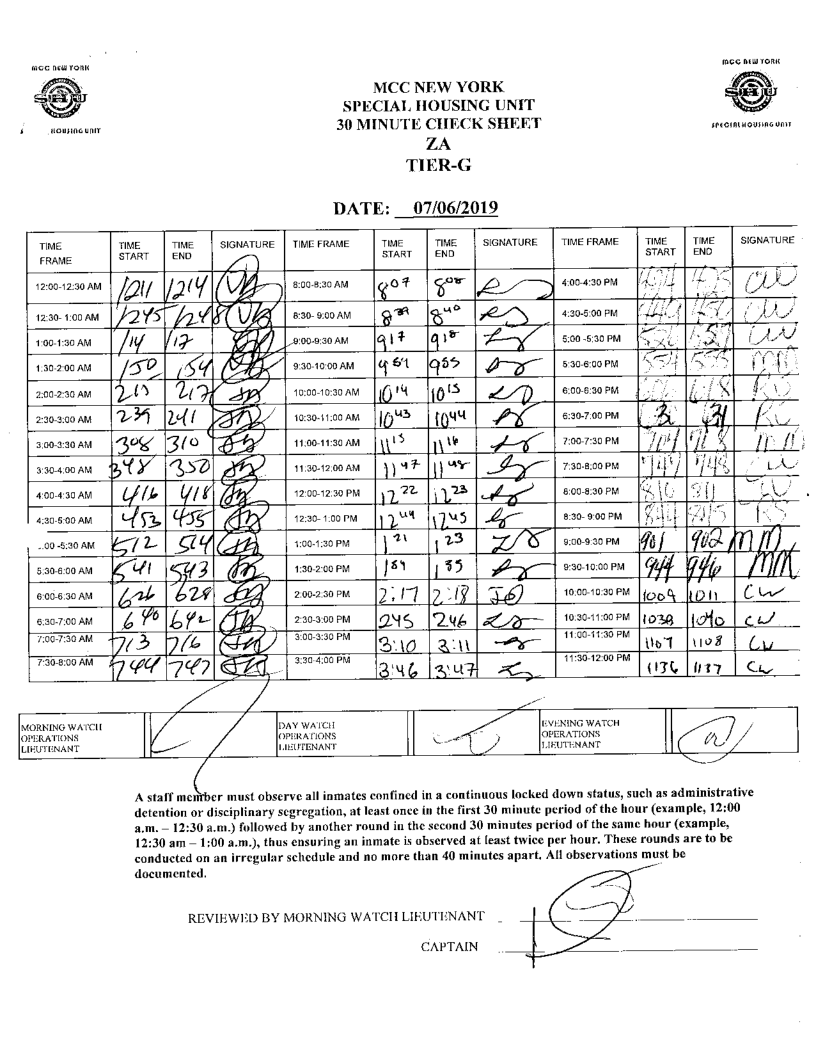 MCC NEW YORK
HOUSING UNIT
MCC NEW YORK
SPECIAL HOUSING UNIT
MCC NEW YORK
SPECIAL HOUSING UNIT
30 MINUTE CHECK SHEET
ZA
TIER-G
DATE: 07/06/2019
TIME FRAME TIME START TIME END SIGNATURE TIME FRAME TIME START TIME END SIGNATURE TIME FRAME TIME START TIME END SIGNATURE
12:00-12:30 AM 1211 1214 8:00-8:30 AM 807 808 4:00-4:30 PM CW
12:30- 1:00 AM 1245 1248 8:30- 9:00 AM 839 840 4:30-5:00 PM CW
1:00-1:30 AM 114 117 9:00-9:30 AM 917 918 5:00 -5:30 PM CW
1:30-2:00 AM 150 154 9:30-10:00 AM 955 5:30-6:00 PM MM
2:00-2:30 AM 215 217 10:00-10:30 AM 1014 1015 6:00-6:30 PM
2:30-3:00 AM 239 241 10:30-11:00 AM 1043 1044 6:30-7:00 PM
3:00-3:30 AM 308 310 11:00-11:30 AM 1115 1116 7:00-7:30 PM MM
3:30-4:00 AM 348 350 11:30-12:00 AM 1147 1148 7:30-8:00 PM 747 748 CW
4:00-4:30 AM 416 418 12:00-12:30 PM 1222 1223 8:00-8:30 PM 810 811
4:30-5:00 AM 453 455 12:30- 1:00 PM 1244 1245 8:30- 9:00 PM 844 845
:00 -5:30 AM 512 514 1:00-1:30 PM 121 123 9:00-9:30 PM 901 902 MM
5:30-6:00 AM 541 543 1:30-2:00 PM 9:30-10:00 PM 944 946 MM
6:00-6:30 AM 626 628 2:00-2:30 PM 2:17 2:18 10:00-10:30 PM 1009 1011 CW
6:30-7:00 AM 640 642 2:30-3:00 PM 245 246 10:30-11:00 PM 1038 1040 CW
7:00-7:30 AM 713 716 3:00-3:30 PM 3:10 3:11 11:00-11:30 PM 1107 1108 CW
7:30-8:00 AM 744 747 3:30-4:00 PM 3:46 3:47 11:30-12:00 PM 1136 1137 CW
MORNING WATCH OPERATIONS LIEUTENANT DAY WATCH OPERATIONS LIEUTENANT EVENING WATCH OPERATIONS LIEUTENANT
A staff member must observe all inmates confined in a continuous locked down status, such as administrative
detention or disciplinary segregation, at least once in the first 30 minute period of the hour (example, 12:00
a.m. – 12:30 a.m.) followed by another round in the second 30 minutes period of the same hour (example,
12:30 am – 1:00 a.m.), thus ensuring an inmate is observed at least twice per hour. These rounds are to be
conducted on an irregular schedule and no more than 40 minutes apart. All observations must be
documented.
REVIEWED BY MORNING WATCH LIEUTENANT
CAPTAIN